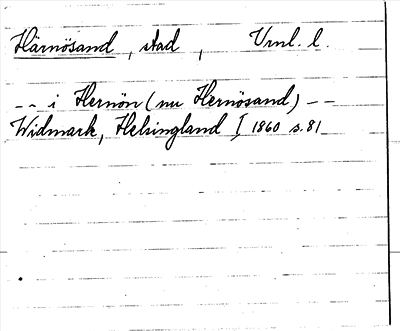 Härnösand, stad, Vrnl. l.
-- i Hernön (nu Hernösand) --
Widmark, Helsingland I, 1860 s. 81